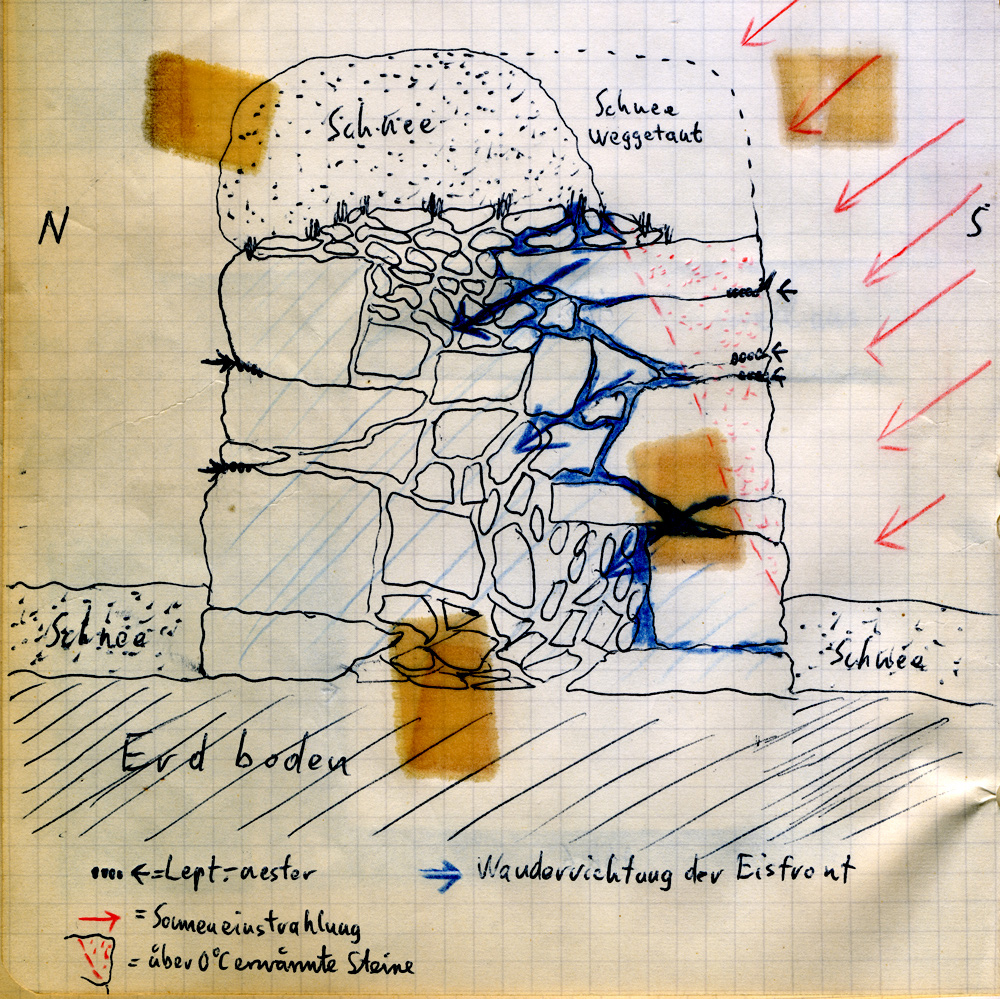 Schnee
Schnee
weggetaut
N
S
Schnee
Schnee
Erdboden
←=Lept.-nester
Wanderrichtung der Eisfront
= Sonneneinstrahlung
= über 0°C erwärmte Steine